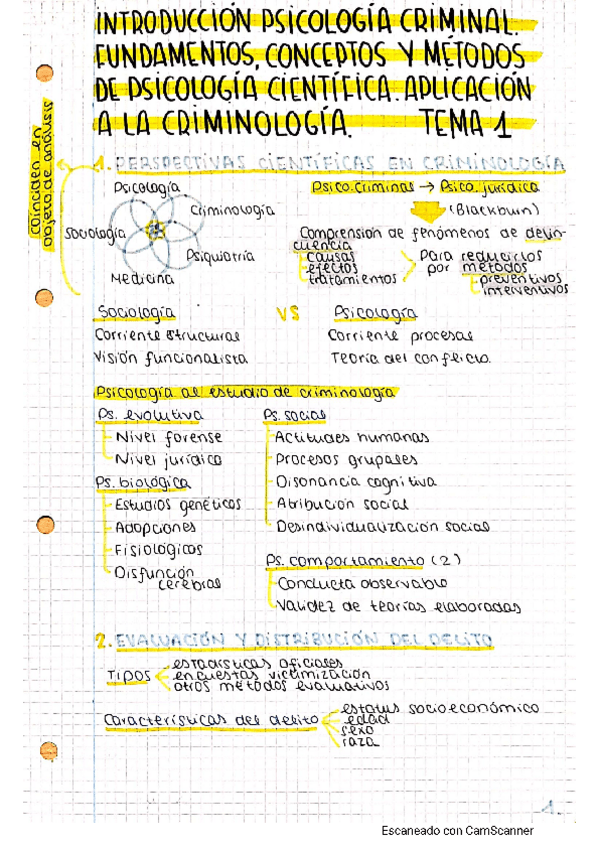 INTRODUCCIÓN PSICOLOGÍA CRIMINAL.
FUNDAMENTOS, CONCEPTOS Y MÉTODOS
DE PSICOLOGÍA CIENTÍFICA. APLICACIÓN
A LA CRIMINOLOGÍA. TEMA 1
coinciden en
objeto de análisis
1. PERSPECTIVAS CIENTÍFICAS EN CRIMINOLOGÍA
Psicología
Criminología
Sociología
Psiquiatría
Medicina
Psico. criminal → Psico. jurídica
(Blackburn)
Comprensión de fenómenos de delin-
cuencia
causas
efectos
tratamientos
Para reducirlos
por métodos
preventivos
interventivos
Sociología VS Psicología
Corriente structural Corriente procesal
Visión funcionalista Teoría del conflicto.
Psicología al estudio de criminología
Ps. evolutiva
Nivel forense
Nivel jurídico
Ps. biológica
Estudios genéticos
Adopciones
Fisiológicos
Disfunción
cerebral
Ps. social
Actitudes humanas
Procesos grupales
Disonancia cognitiva
Atribución social
Desindividualización social
Ps. comportamiento (2)
Conducta observable
Validez de teorías elaboradas
2. EVALUACIÓN Y DISTRIBUCIÓN DEL DELITO
Tipos
estadísticas oficiales
encuestas victimización
otros métodos evaluativos
Características del delito
estatus socioeconómico
edad
sexo
raza
1.
Escaneado con CamScanner